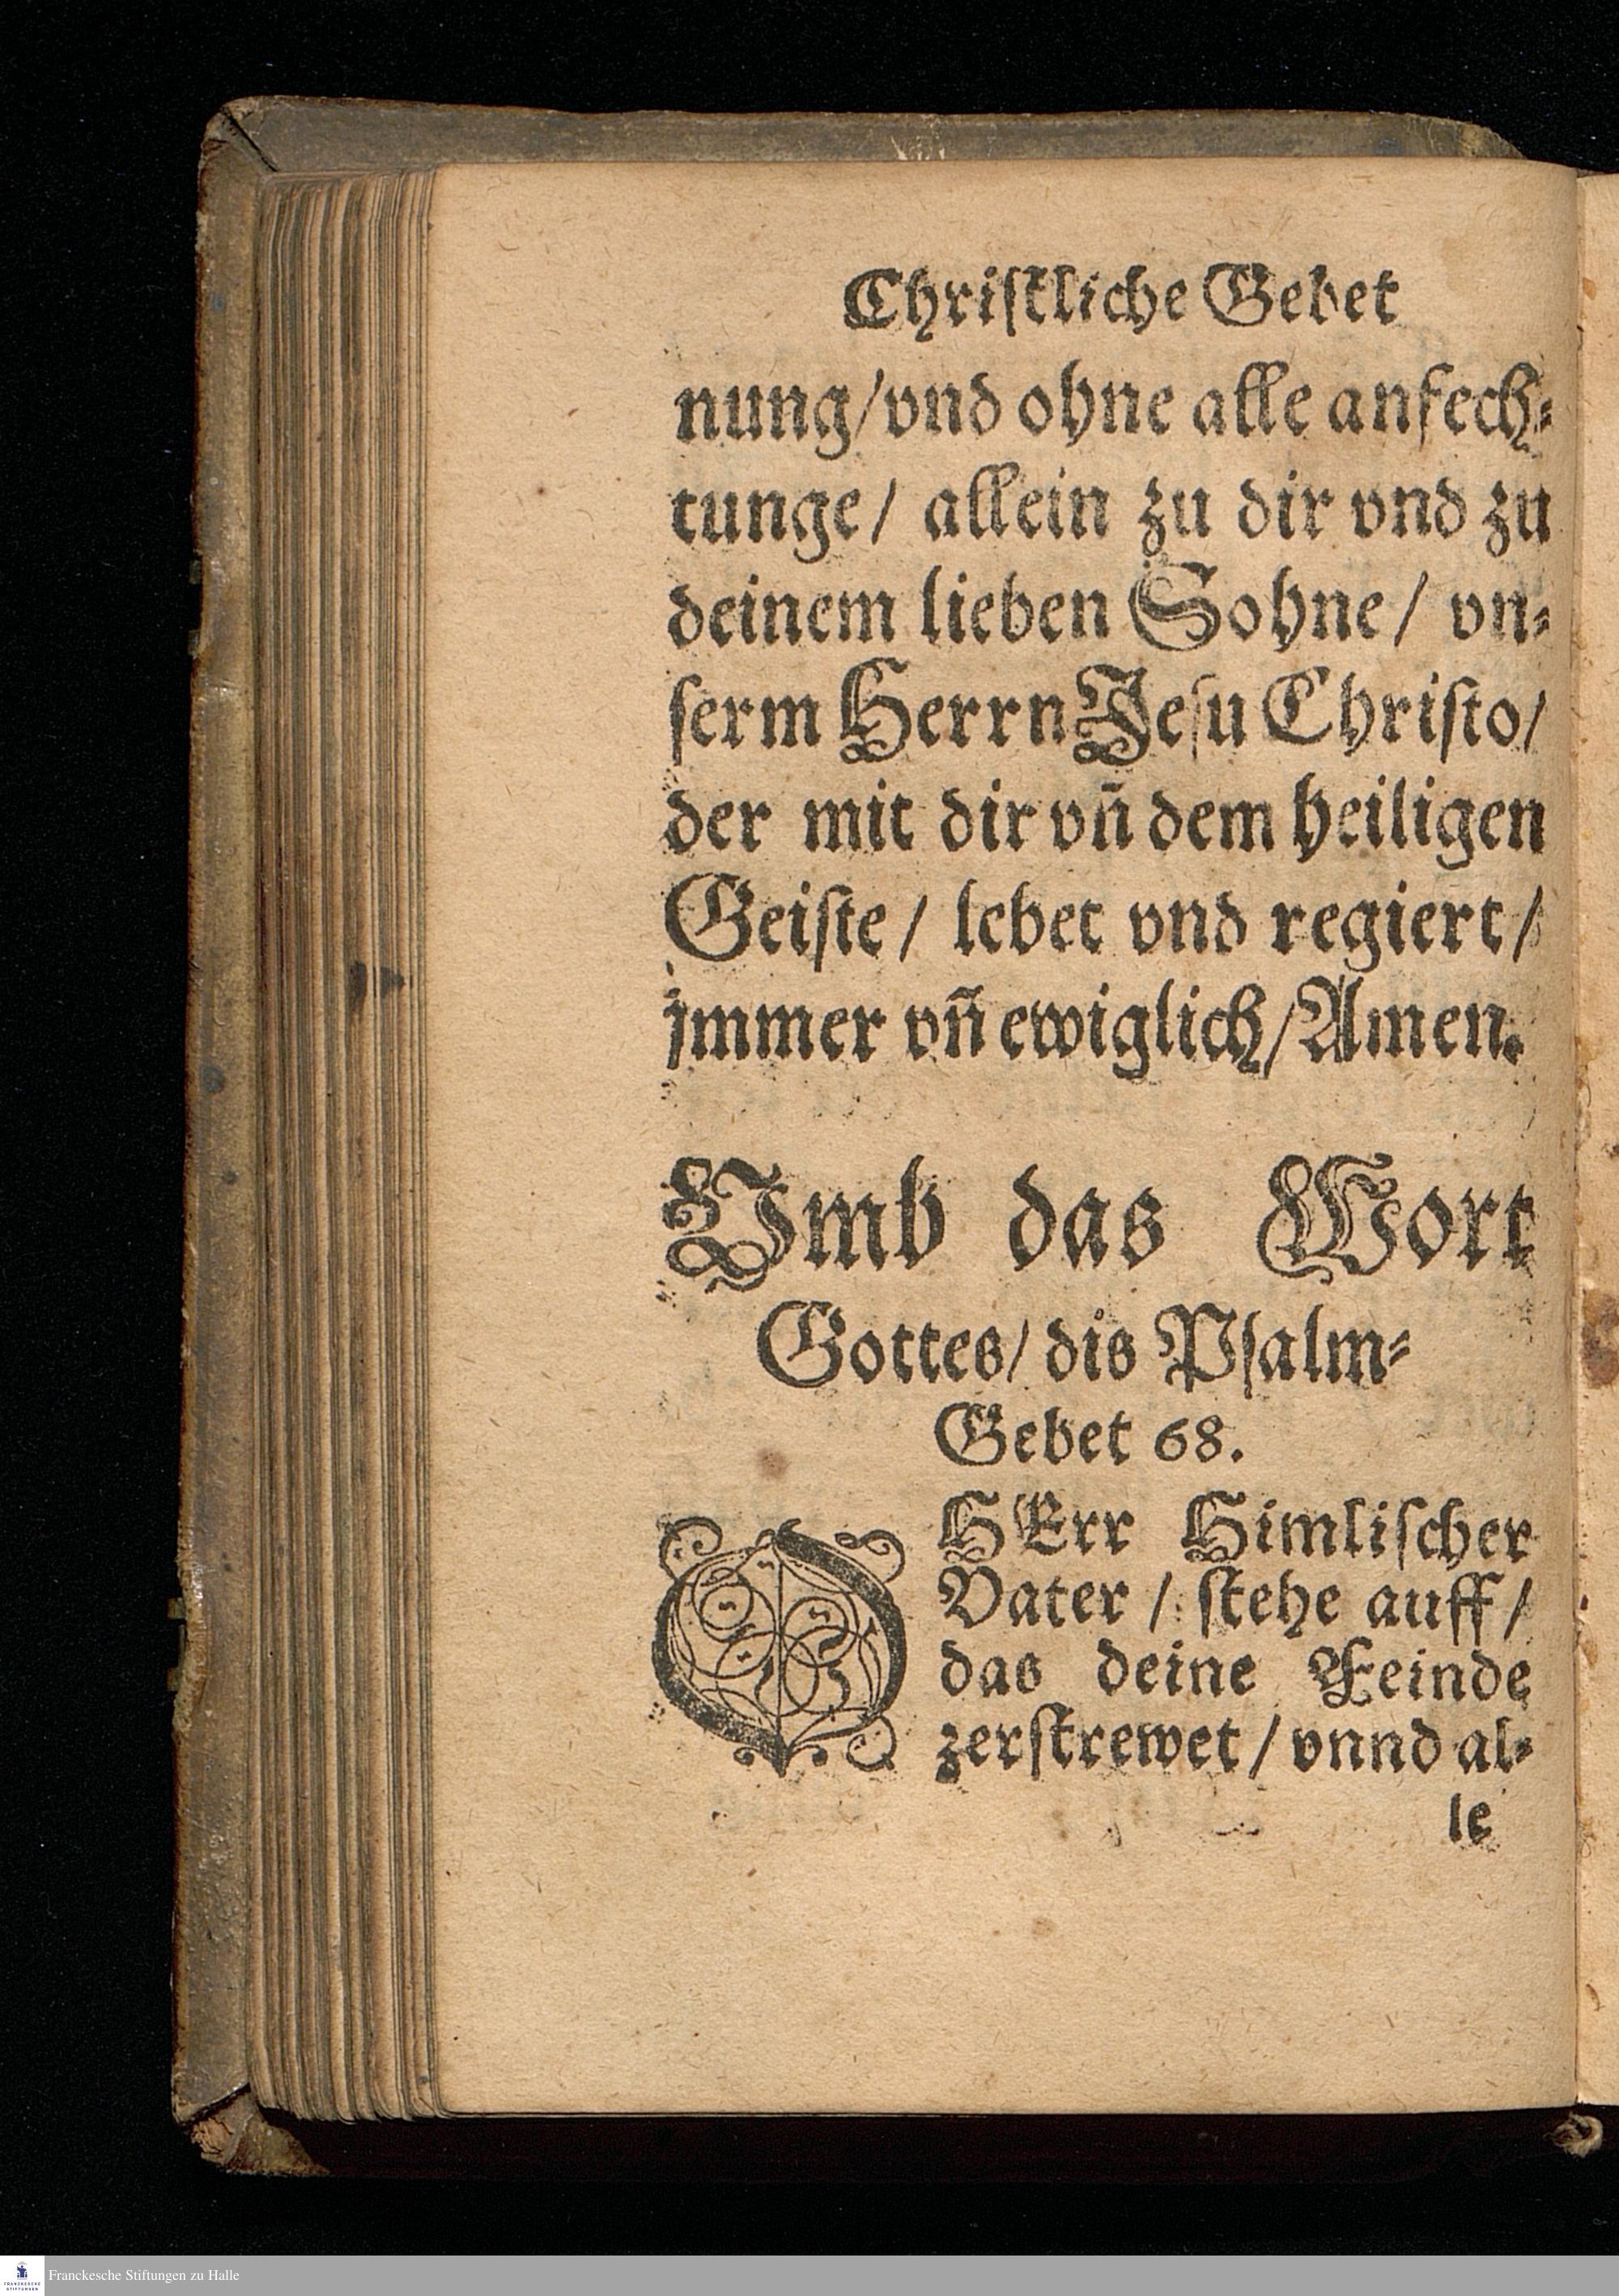 Chriſtliche Gebet
nung/vnd ohne alle anfech⸗
tunge/ allein zu dir vnd zu
deinem lieben Sohne/ vn⸗
ſerm Herrn Jeſu Chriſto/
der mit dir vñ dem heiligen
Geiſte/ lebet vnd regiert/
jmmer vñ ewiglich/Amen.
Vmb das Wort
Gottes/ dis Pſalm⸗
Gebet 68.
O HErr Himliſcher
Vater / ſtehe auff/
das deine Feinde
zerſtrewet / vnnd al⸗
le
FRANCKESCHE STIFTUNGEN
Franckesche Stiftungen zu Halle